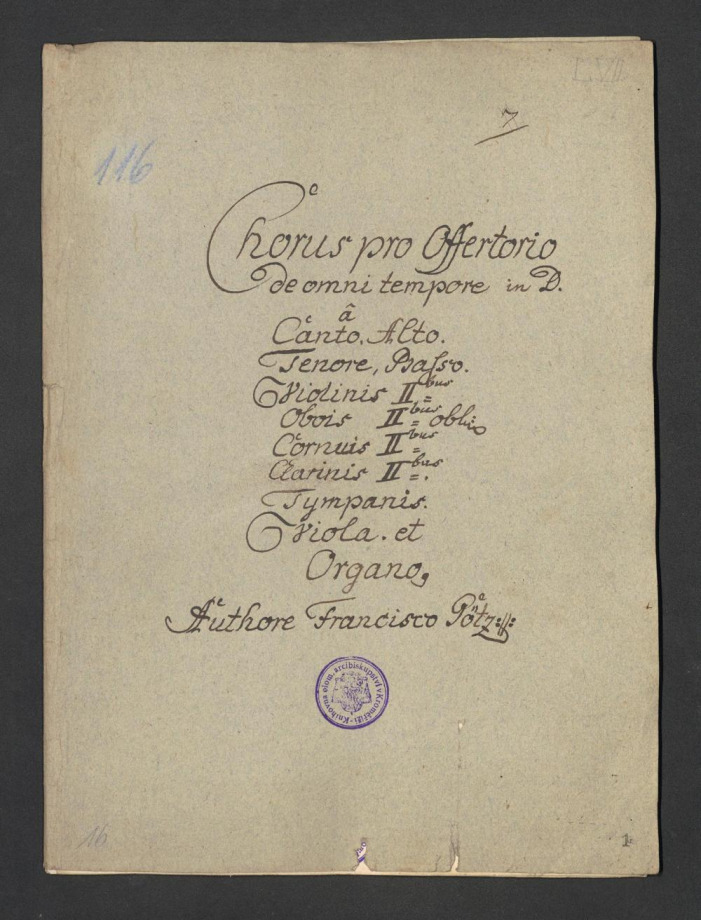 7
116
Chorus pro Offertorio
de omni tempore in D.
â
Canto. Alto.
Tenore, Basso.
Violinis II bus
Obois II bus
Cornuis II bus
Clarinis II bus.
Tympanis.
Viola. et
Organo,
Authore Francisco Götz
Knihovna olom. arcibiskupství v Kroměříži
16
1